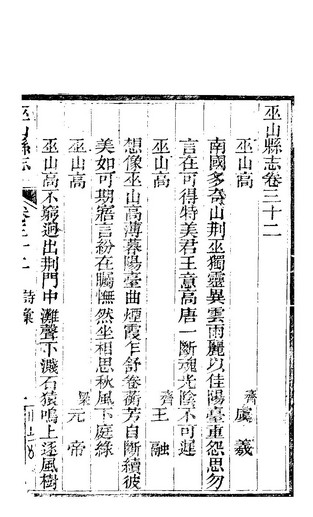 巫山縣志卷三十二
巫山高 齊 虞羲
南國多奇山荆巫獨靈異雲雨麗以佳陽臺重怨思勿
言在可得特美君王意高唐一斷魂光陰不可遲
巫山高 齊 王融
想像巫山高薄暮陽臺曲煙霞乍舒卷蘅芳自斷續彼
美如可期寤言紛在矚憮然坐相思秋風下庭綠
巫山高 梁 元帝
巫山高不窮迥出荆門中灘聲下濺石猿鳴上逐風樹
巫山縣志 卷三十二 詩彙 一